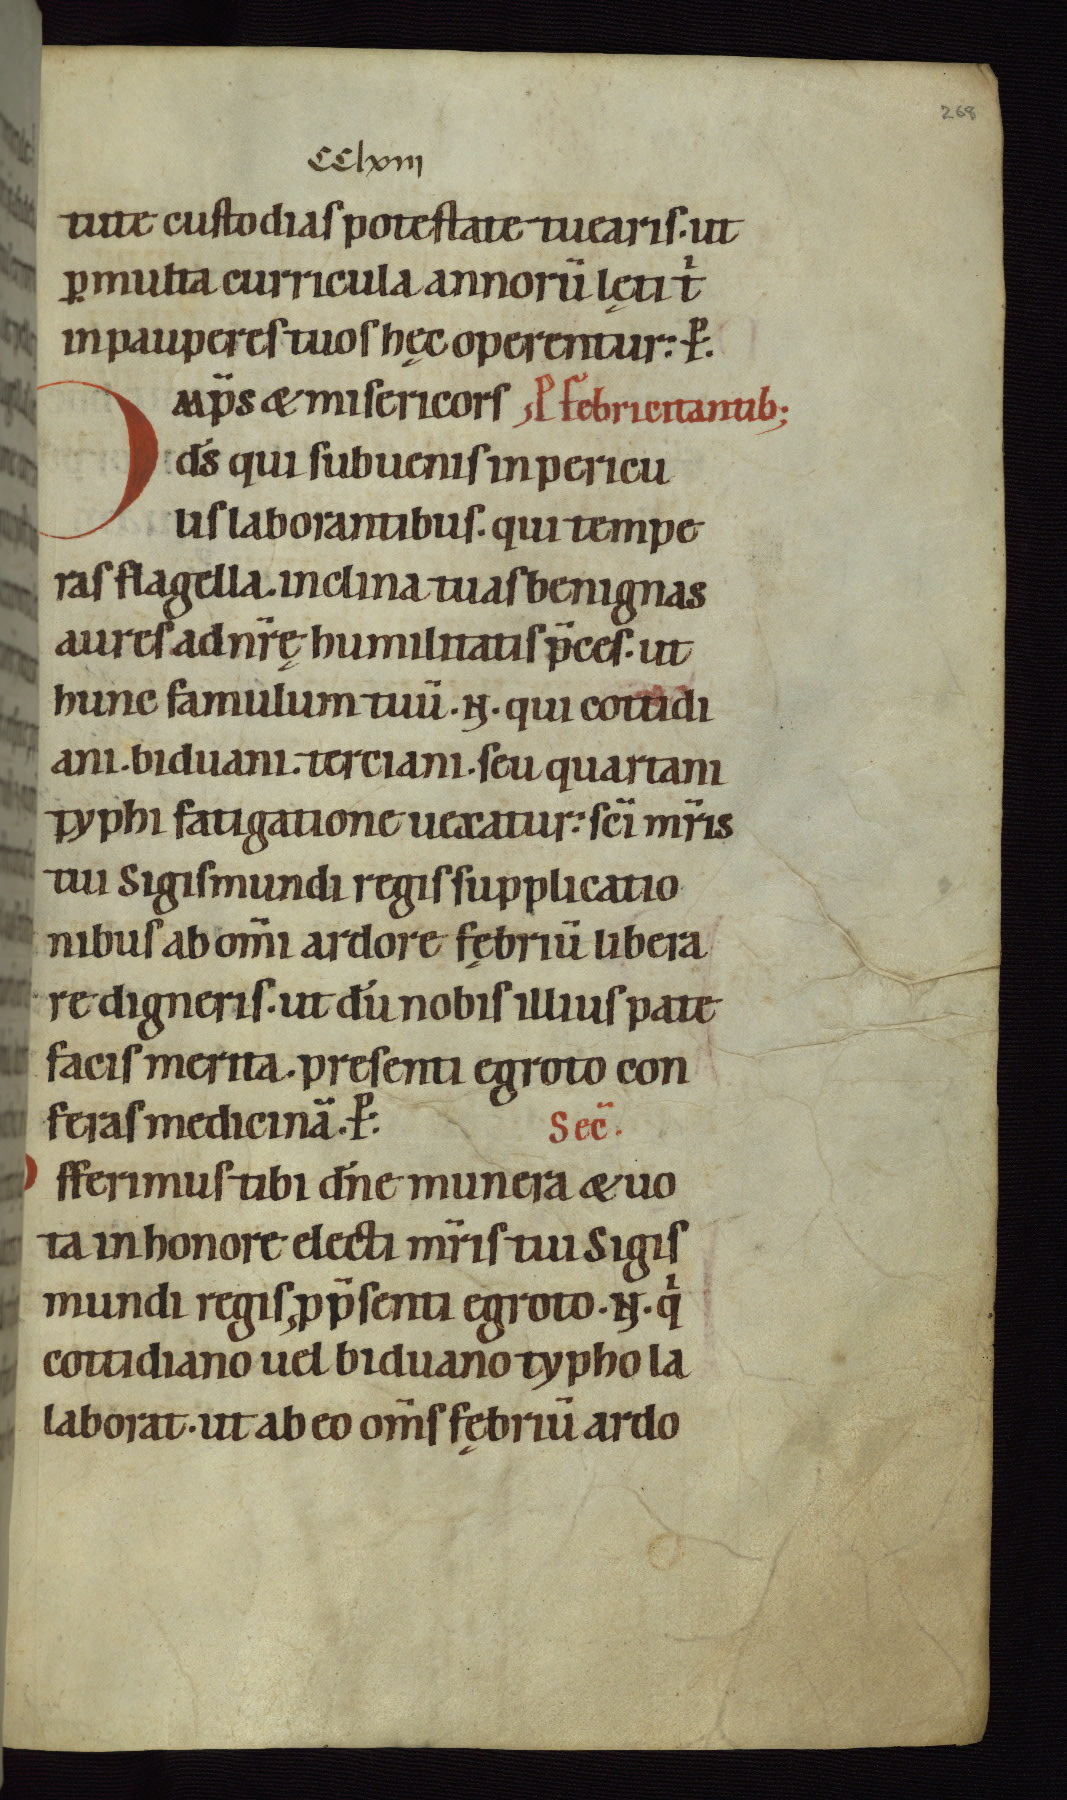 268
CClxiii
tute custodias potestate tuearis. ut
ꝑ multa curricula annorū lęti t̍
in pauperes tuos hęc operentur: ꝑ.
Omp̄s & misericors ꝓ febricitantib;
d̄s qui subuenis in pericu
lis laborantibus. qui tempe
ras flagella. inclina tuas benignas
aures ad nr̄ę humilitatis p̄ces. ut
hunc famulum tuū .N. qui cottidi
ani. biduani. terciani. seu quartani
typhi fatigatione uexatur: sc̄i mr̄is
tui Sigismundi regis supplicatio
nibus ab om̄i ardore fębriū libera
re digneris. ut dū nobis illius pate
facis merita. presenti egroto con
feras medicinā. ꝑ.
Sec̄.
Offerimus tibi dn̄e munera & uo
ta in honore electi mr̄is tui Sigis
mundi regis, ꝓ p̄senti egroto .N. q̍
cottidiano uel biduano typho la
laborat. ut ab eo om̄s fębriū ardo